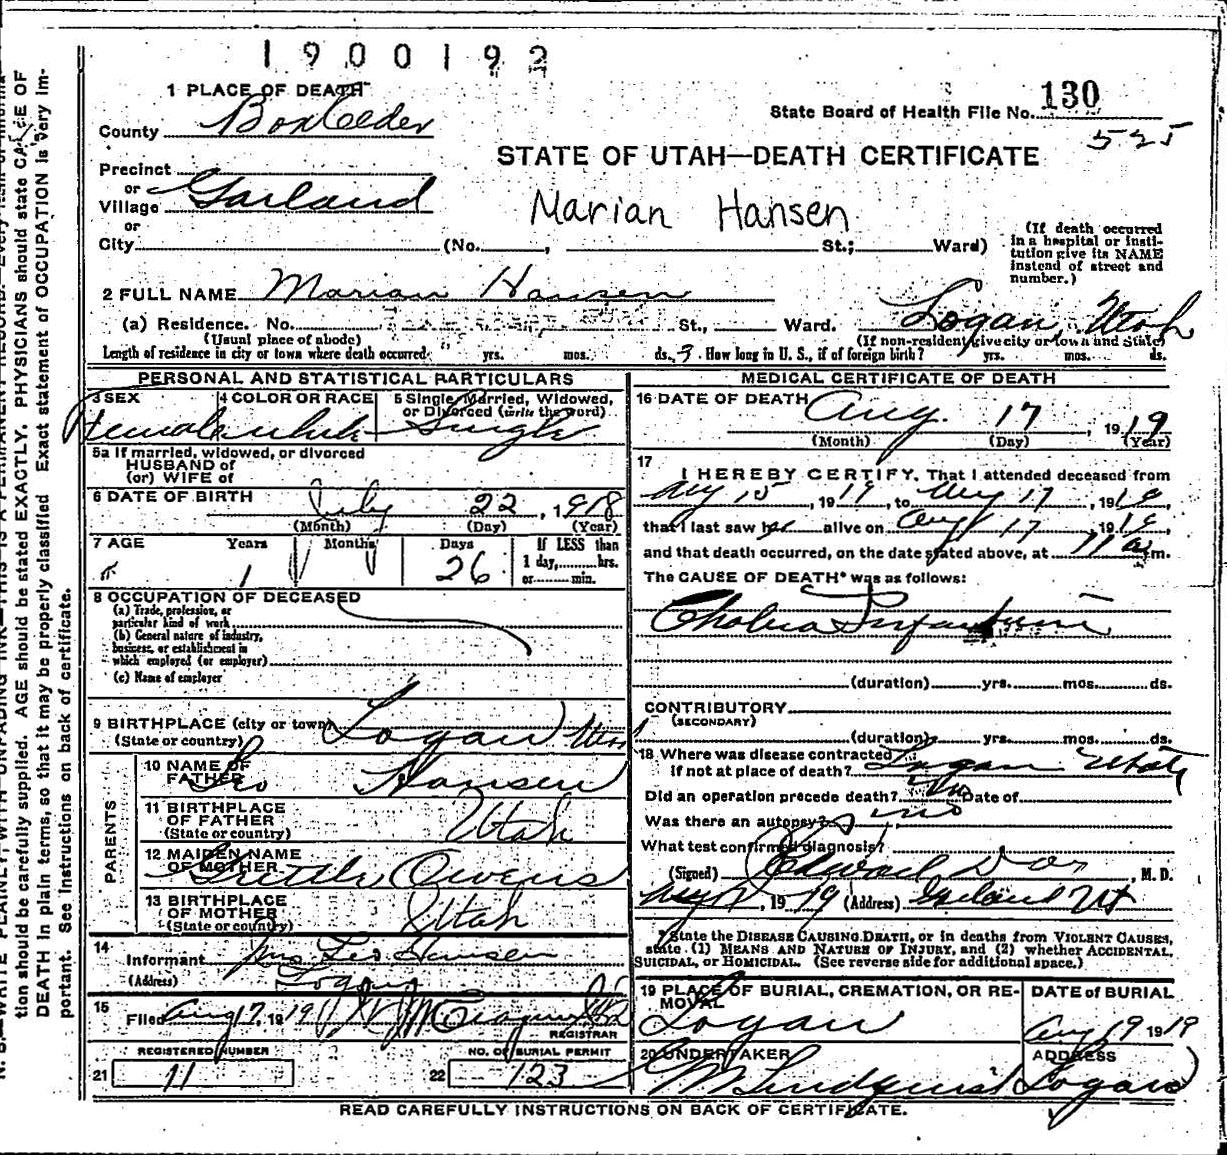 1900192
1 PLACE OF DEATH
State Board of Health File No. 130
525
County Box Elder
STATE OF UTAH—DEATH CERTIFICATE
Precinct
or
Village Garland
Marian Hansen
or
City (No. , St.; Ward)
(If death occurred
in a hospital or insti-
tution give its NAME
instead of street and
number.)
2 FULL NAME Marian Hansen
(a) Residence. No. St., Ward. Logan, Utah
(Usual place of abode) (If non-resident give city or town and State)
Length of residence in city or town where death occurred yrs. mos. ds. 3 How long in U. S., if of foreign birth? yrs. mos. ds.
PERSONAL AND STATISTICAL PARTICULARS
3 SEX 4 COLOR OR RACE 5 Single, Married, Widowed,
or Divorced (write the word)
Female white Single
5a If married, widowed, or divorced
HUSBAND of
(or) WIFE of
6 DATE OF BIRTH July 22, 1918
(Month) (Day) (Year)
7 AGE Years Months Days If LESS than
1 26 1 day, hrs.
or min.
8 OCCUPATION OF DECEASED
(a) Trade, profession, or
particular kind of work
(b) General nature of industry,
business, or establishment in
which employed (or employer)
(c) Name of employer
9 BIRTHPLACE (city or town) Logan Utah
(State or country)
PARENTS
10 NAME OF
FATHER Leo Hansen
11 BIRTHPLACE
OF FATHER Utah
(State or country)
12 MAIDEN NAME
OF MOTHER Owens
13 BIRTHPLACE
OF MOTHER Utah
(State or country)
14
Informant Mrs. Leo Hansen
(Address) Logan
15
Filed Aug 17, 1919
REGISTRAR
REGISTERED NUMBER NO. OF BURIAL PERMIT
21 11 22 123
MEDICAL CERTIFICATE OF DEATH
16 DATE OF DEATH Aug. 17, 1919
(Month) (Day) (Year)
17
I HEREBY CERTIFY, That I attended deceased from
Aug 15, 1919, to Aug 17, 1919
that I last saw her alive on Aug 17, 1919
and that death occurred, on the date stated above, at 11 a.m.
The CAUSE OF DEATH* was as follows:
Cholera Infantum
(duration) yrs. mos. ds.
CONTRIBUTORY
(SECONDARY)
(duration) yrs. mos. ds.
18 Where was disease contracted
if not at place of death? Logan Utah
Did an operation precede death? No Date of
Was there an autopsy? no
What test confirmed diagnosis?
(Signed) Edward , M. D.
Aug 17, 1919 (Address) Garland Ut
*State the DISEASE CAUSING DEATH, or in deaths from VIOLENT CAUSES,
state (1) MEANS AND NATURE OF INJURY, and (2) whether ACCIDENTAL,
SUICIDAL, or HOMICIDAL. (See reverse side for additional space.)
19 PLACE OF BURIAL, CREMATION, OR RE-
MOVAL
Logan
DATE of BURIAL
Aug 19 1919
20 UNDERTAKER
Lindquist
ADDRESS
Logan
READ CAREFULLY INSTRUCTIONS ON BACK OF CERTIFICATE.
N. B.—WRITE PLAINLY, WITH UNFADING INK—THIS IS A PERMANENT RECORD. Every item of informa-
tion should be carefully supplied. AGE should be stated EXACTLY. PHYSICIANS should state CAUSE OF
DEATH in plain terms, so that it may be properly classified Exact statement of OCCUPATION is very im-
portant. See Instructions on back of certificate.